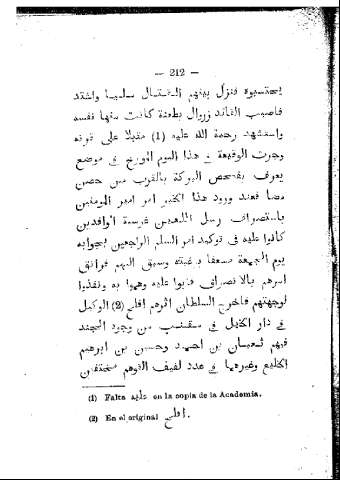 — 212 —
يحتسبوه فنزل بينهم القتال سليما واشتد
فاصيب القائد زروال بطعنة كانت منها نفسه
واستشهد رحمة الله عليه (1) مقبلا على قرنه
وجرت الوقيعة في هذا اليوم المورخ في موضع
يعرف بفحص البركة بالقرب من حصن
فعند ورود هذا الخبر امر امير المومنين
باستصراف رسل اللعين غرسية الوافدين
كانوا عليه في توكيد امر السلم الراجعين بجوابه
يوم الجمعة مسعفا بغيته وسبق اليهم
امرهم بالانصراف فابوا عليه وهموا به ونفذوا
لوجهتهم فاخرج السلطان اثرهم افلح (2) الوكيل
في دار الخيل في من وجوه الجند
فيهم شعبان بن احمد وحسن بن ابرهيم
الخليع وغيرهما في عدد لفيف القوهم مختفين
(1) Falta عليه en la copia de la Academia.
(2) En el original افلح.